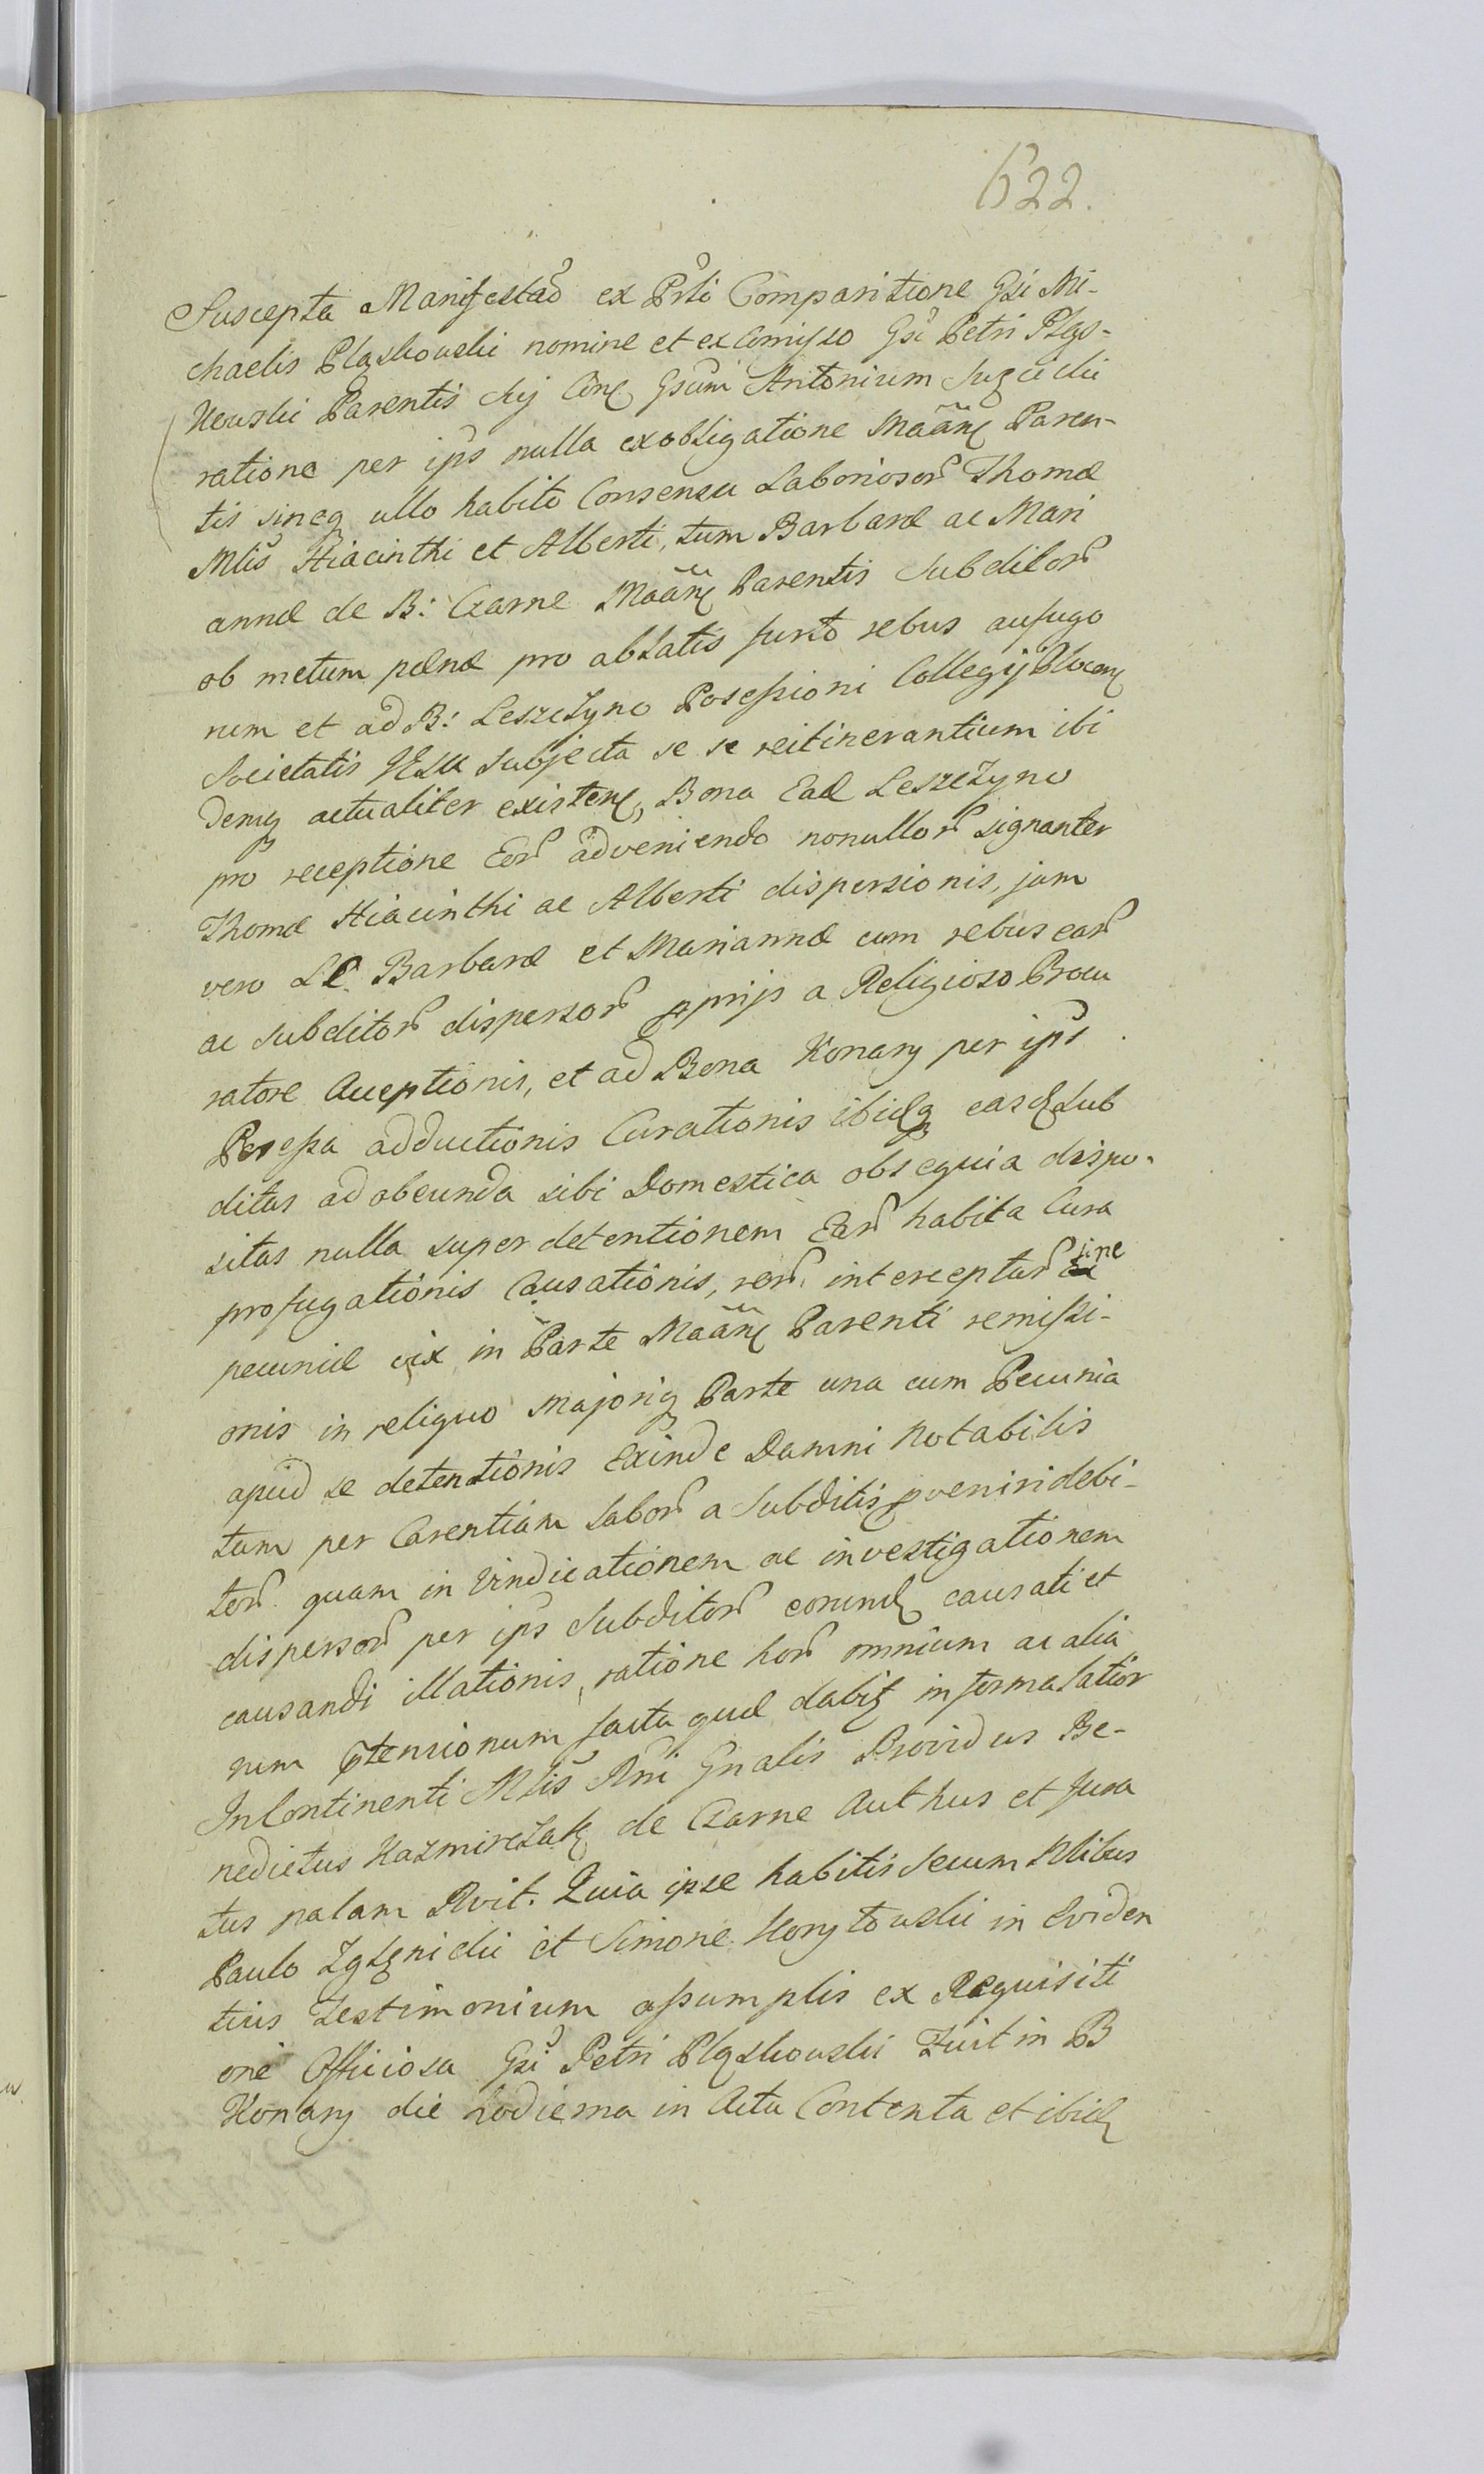 622.
Suscepta Manifestao ex Prsti Comparitione Gsi Mi-
chaelis Pląskowski nomine et ex Comisso Gsi Petri Pląs-
kowski Parentis sui Con Gsum Antonium
ratione per ips nulla exobligatione Maan Paren-
tis sineq ullo habito Consensu Laboriosor Thomæ
Mlis Hiacinthi et Alberti, tum Barbaræ ac Mari
annæ de B: Czarne Maan Parentis Subditor
ob metum pœnæ pro ablatis furto rebus aufugo
rum et ad B: Leszczyno Possessioni Collegij Plocen
Societatis Jesu subjecta se se reitinerantium ibi
demq actualiter existen, Bona Ead Leszczyno
pro receptione Eor adveniendo nonullor signanter
Thomæ Hiacinthi ac Alberti dispersionis, jam
vero LL Barbaræ et Mariannæ cum rebus ear
ac Subditor dispersor pprijs a Religioso Procu
ratore Acceptionis, et ad Bona Konary per ips
Possessa adductionis Curationis ibidq easd Sub
ditas ad obeunda sibi Domestica obsequia dispo-
sitas nulla super detentionem Ear habita Cura
profugationis Causationis, rer interceptar sine
pecuniæ vix in Parte Maan Parenti remissi-
onis in reliquo majoriq Parte una cum Pecunia
apud se detentionis Exinde Damni Notabilis
tam per Carentiam Labor a Subditis pveniri debi-
tor quam in Vindicationem ac investigationem
dispersor per ips Subditor eorund causati et
causandi illationis, ratione hor omnium ac alia
rum ptensionum facta quæ dabit in forma latior
In Continenti Mlis Rni Gnalis Providus Be-
nedictus Kazmirczak de Czarne Authus et Jura
tus palam Rvit. Quia ipse habitis Secum Nlibus
Paulo et Simone Korytowski in Eviden
tius Testimonium assumptis ex Requisiti
one Officiosa Gsi Petri Pląskowski Fuit in B
Konary die hodierna in Actu Contenta et ibid